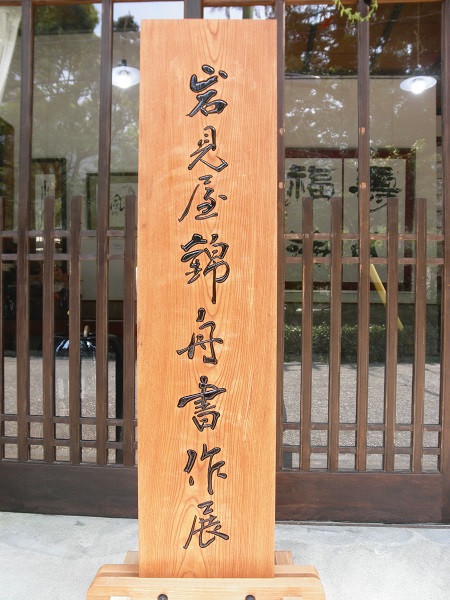 岩見屋錦舟書作展
福